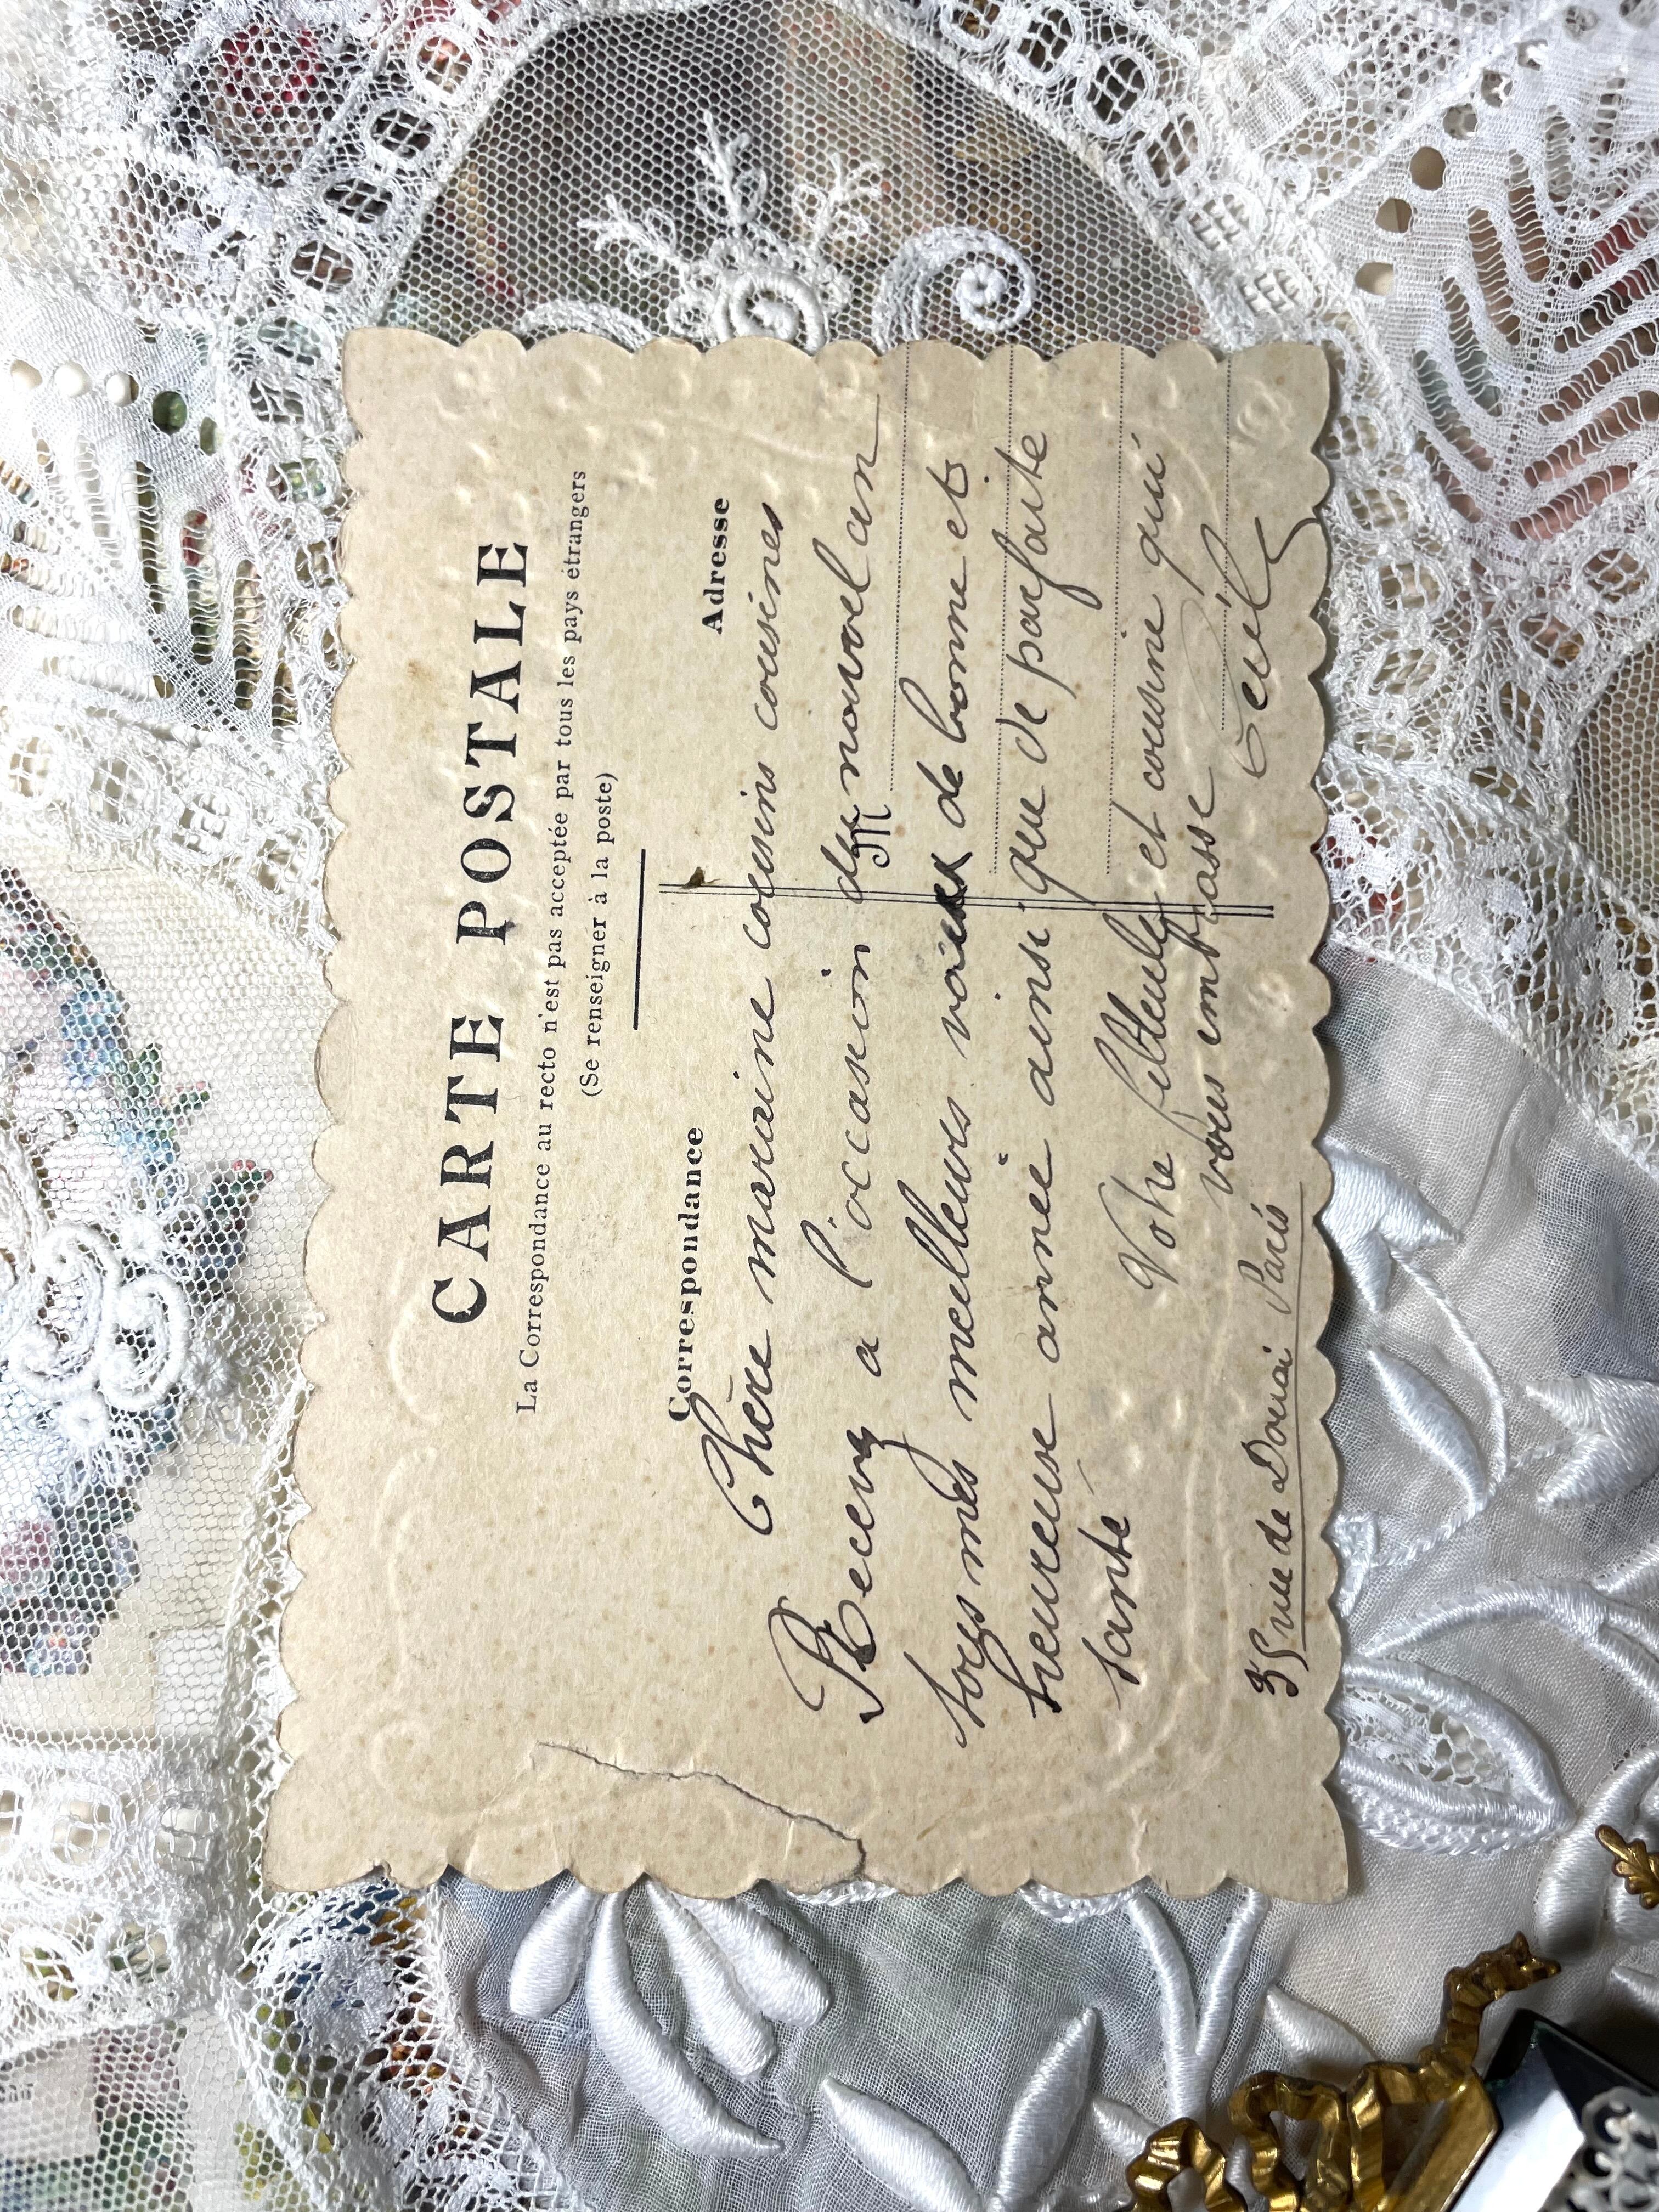 CARTE POSTALE
La Correspondance au recto n'est pas acceptée par tous les pays étrangers
(Se renseigner à la poste)
Correspondance
Adresse
M
Chère marraine cousins cousines
Recevez a l'occasion du nouvel an
tous mes meilleurs vœux de bonne et
heureuse année ainsi que de parfaite
santé
Votre filleule et cousine qui
vous embrasse
35 rue de Douai Paris